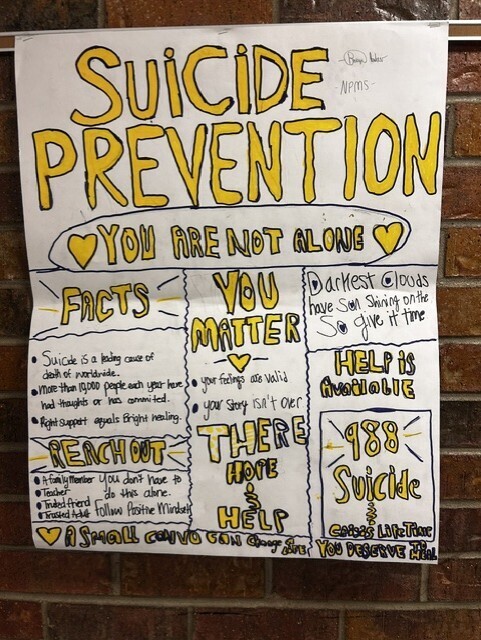 SUICIDE
PREVENTION
-NPMS-
YOU ARE NOT ALONE
FACTS
• Suicide is a leading cause of
death of worldwide.
• More than 10,000 people each year have
had thoughts or has commited.
• Right support equals Bright healing.
REACH OUT
• A family member
• Teacher
• Trusted friend
• Trusted Adult
You don't have to
do this alone.
Follow Positive Mindset
YOU
MATTER
• your feelings are valid
• your story isn't over
THERE
HOPE
&
HELP
Darkest Clouds
have Sun Shining on the
So give it time
HELP is
AVAILABLE
988
Suicide
&
CRISIS LIFETIME
A SMALL CONVO CAN Change a life
YOU DESERVE to Heal